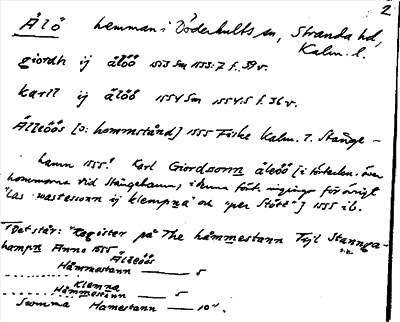 2
Ålö hemman i Döderhults sn, Stranda hd,
Kalm. l.
giordh ij ålöö 1553 Sm 1553:7 f. 39v.
karll ij ålöö 1554 Sm 1554:5 f. 36v.
Ålleöös [o: hommstånd] 1555 Fiske Kalm. 7. Stånge-
hamn 1555. Karl Giordsonn åleöö [i förteckn. över
hommorna vid Stångehamn,
"Las wastessonn ij klempna och per Stöt"] 1555 ib.
Det står: "Register på The håmmestann Tijl Stannga-
hampn Anno 1555
Ålleöös
Håmmestann — 5
Klemna
Håmmestann — 5
Summa Hamestann — 10".